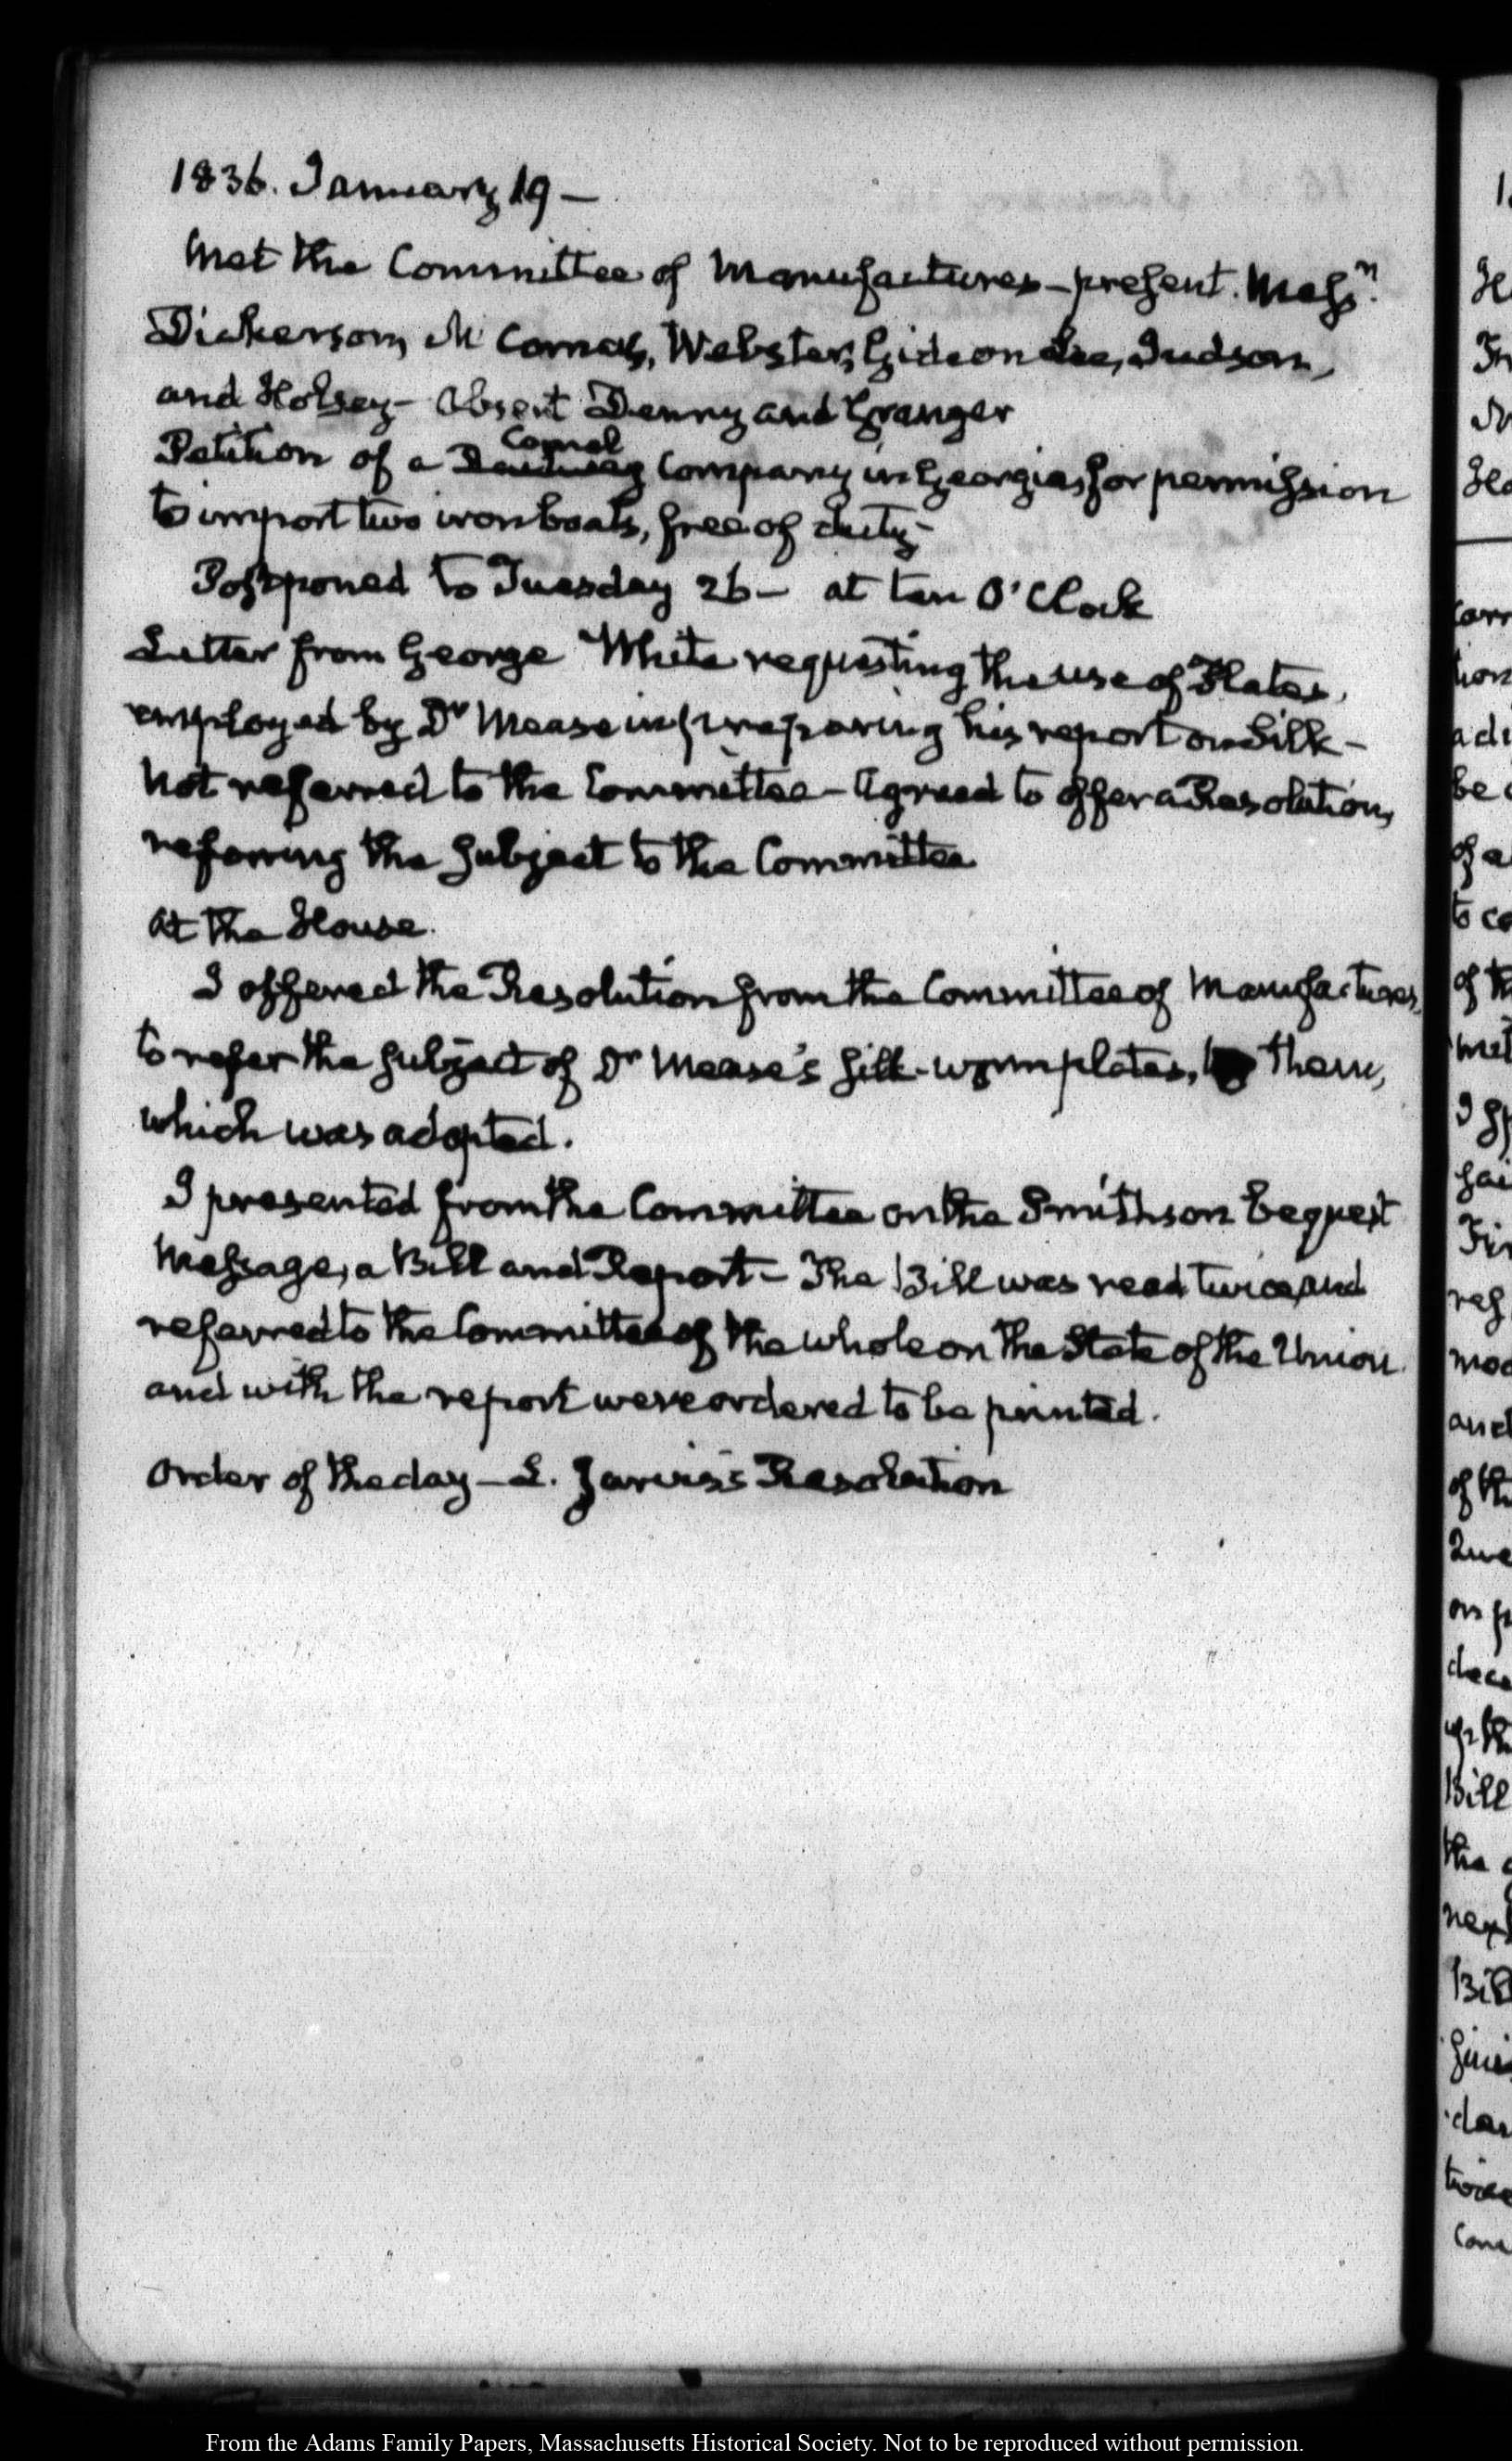 1836. January 19 —
Met the Committee of Manufactures — present. Messrs.
Dickerson, McComas, Webster, Gideon Lee, Judson,
and Holsey — Absent Denny and Granger
Canal
Petition of a Company in Georgia, for permission
to import two iron boats, free of duty —
Postponed to Tuesday 26 — at ten O'Clock
Letter from George White requesting the use of Plates,
employed by Dr Mease in preparing his report on Silk —
not referred to the Committee — Agreed to offer a Resolution,
referring the subject to the Committee
At the House.
I offered the Resolution from the Committee of Manufactures,
to refer the subject of Dr Mease's silk-worm plates, to them,
which was adopted.
I presented from the Committee on the Smithson bequest
Message, a Bill and Report — The Bill was read twice, and
referred to the Committee of the whole on the State of the Union
and with the report were ordered to be printed.
Order of the day — L. Jarvis's Resolution
From the Adams Family Papers, Massachusetts Historical Society. Not to be reproduced without permission.